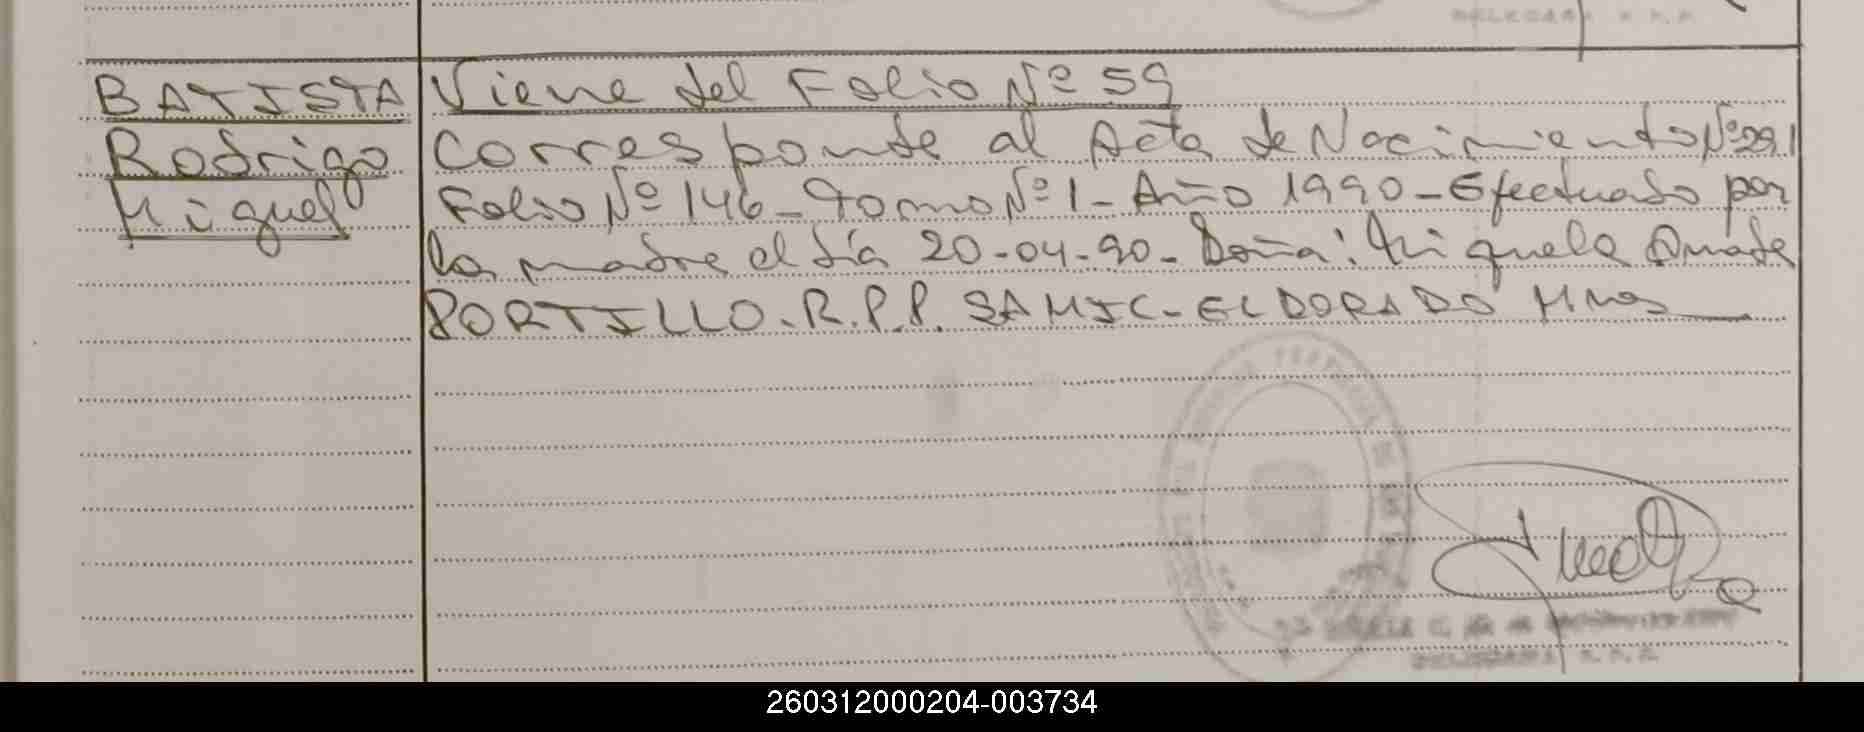 DELEGADA R.P.P.
BATISTA Viene del Folio Nº 59
Rodrigo Corresponde al Acta de Nacimiento Nº 291
Miguel Folio Nº 146 - Tomo Nº 1 - Año 1990 - Efectuado por
la madre el día 20-04-90 - Doña: Miguela Amada
PORTILLO - R.P.P. SAMIC - ELDORADO Mnes
DELEGADA R.P.P.
260312000204-003734